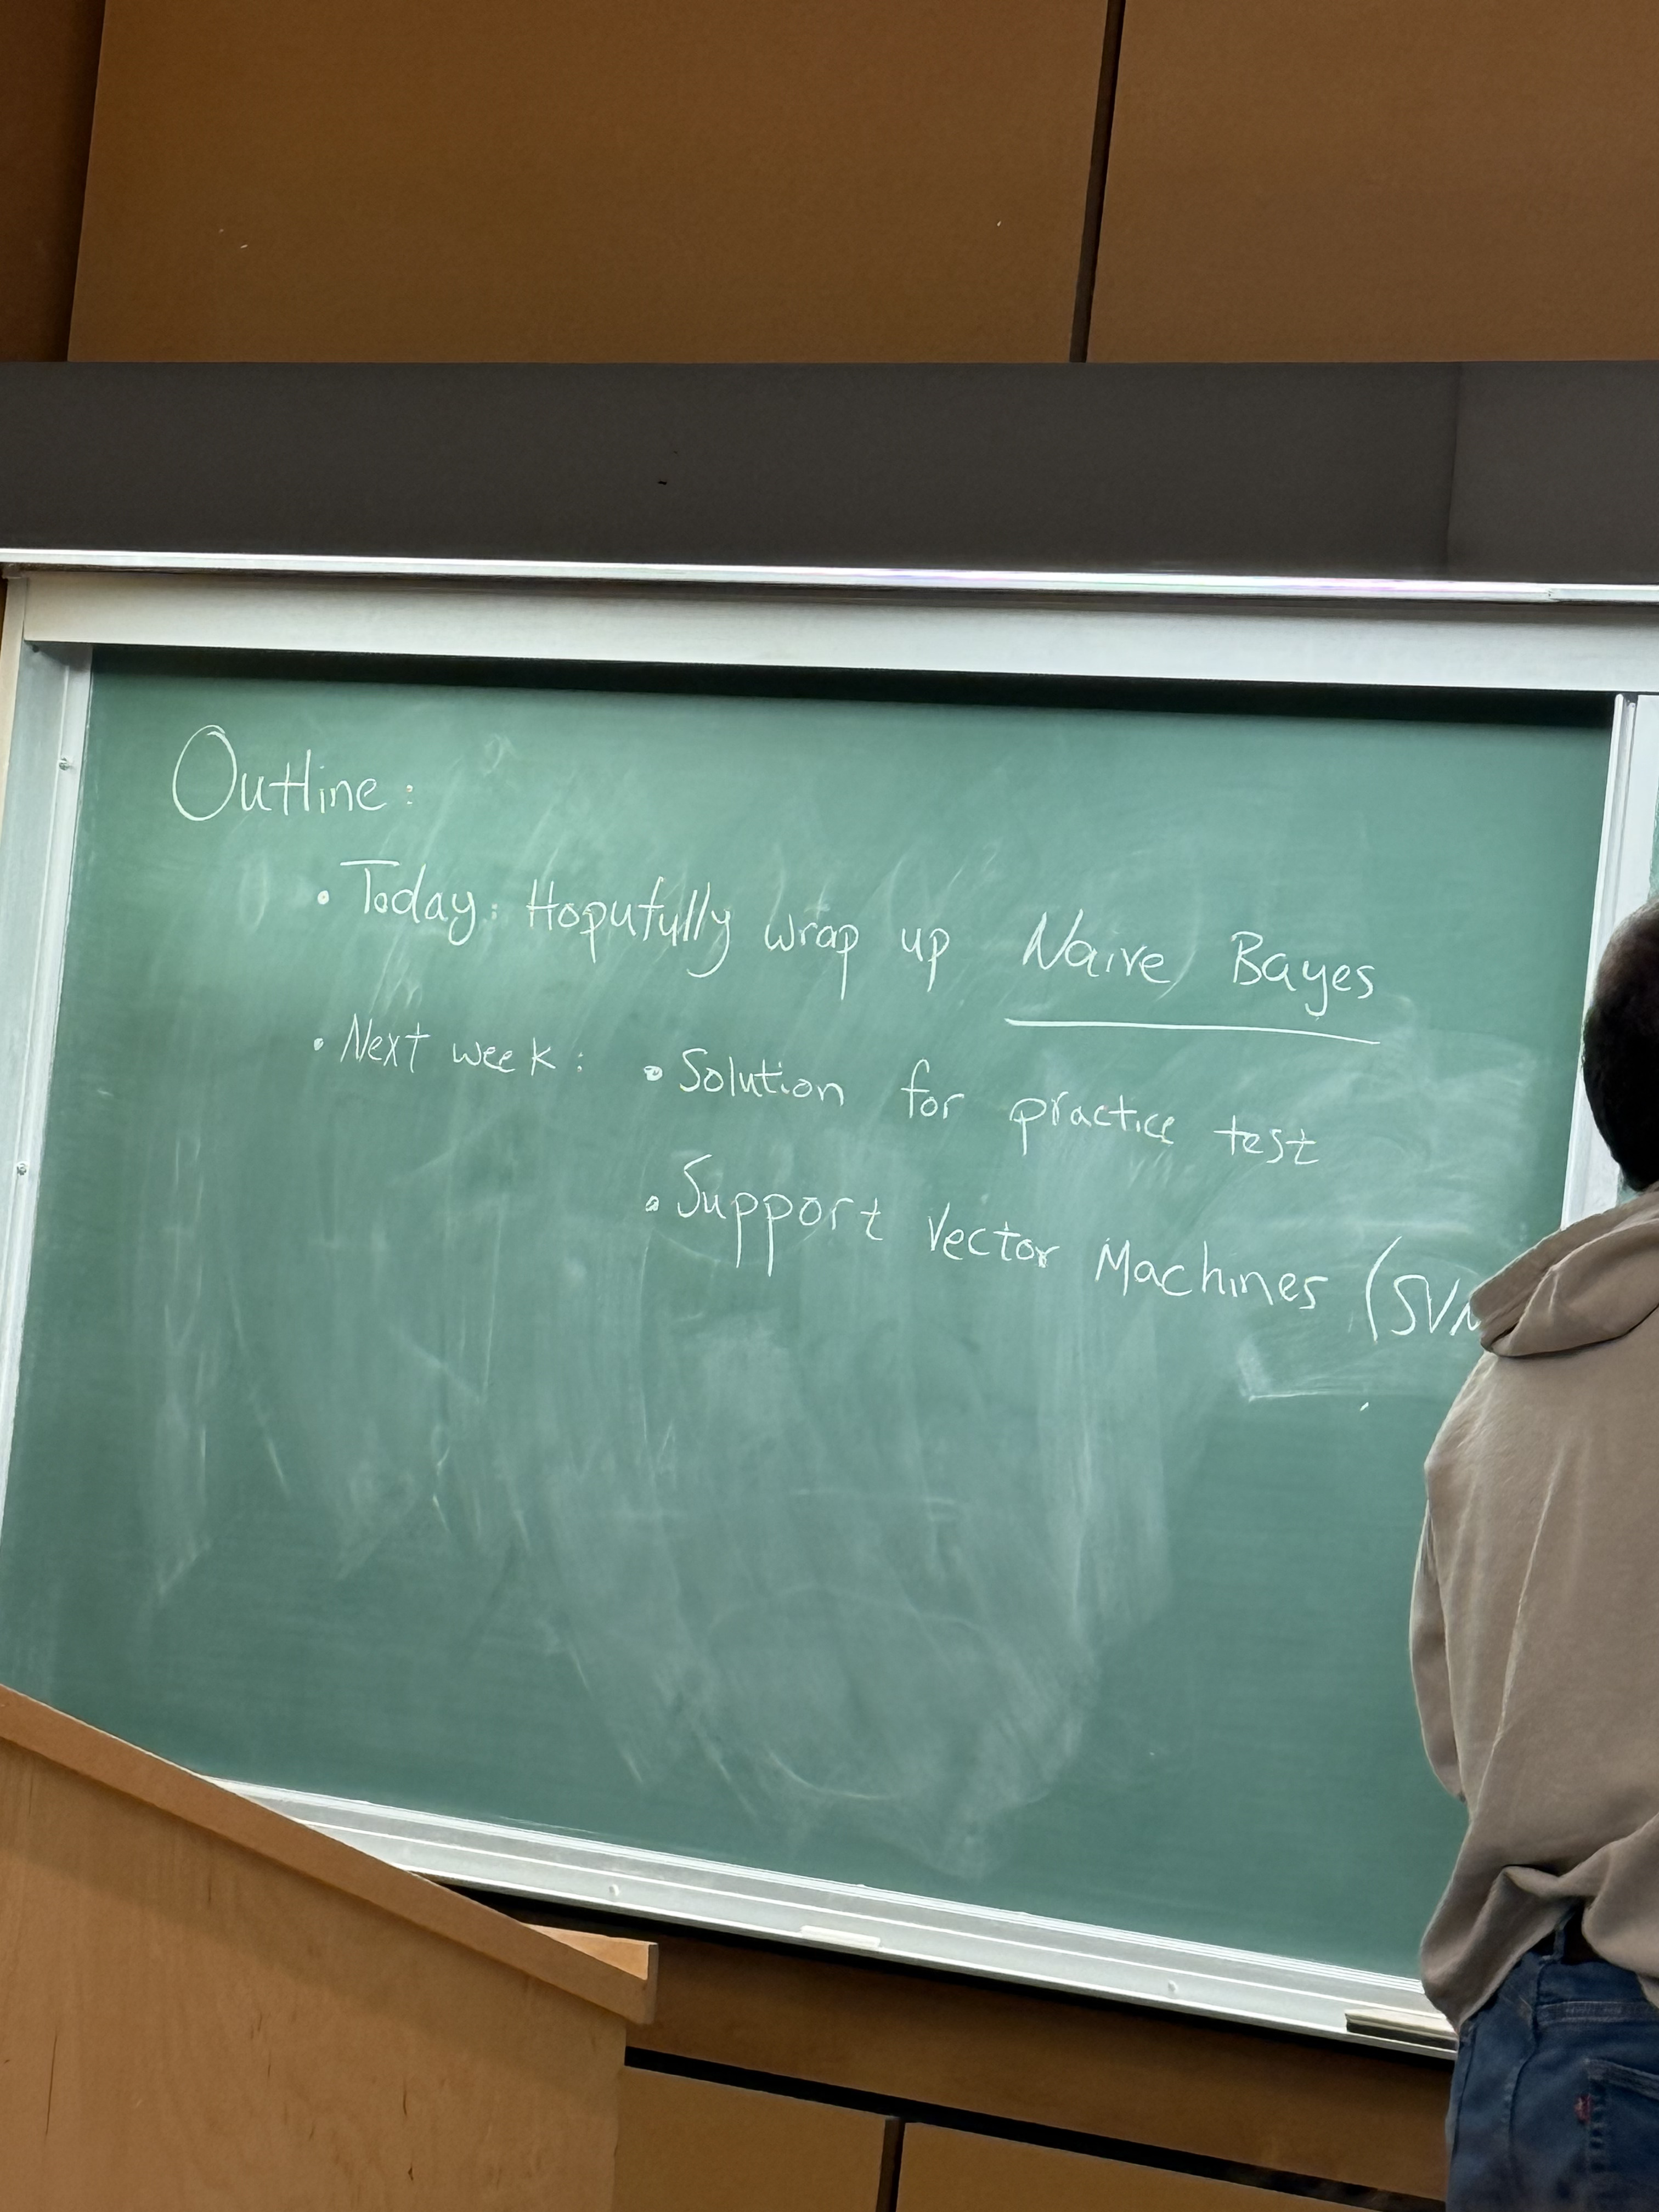 Outline:
• Today: Hopufully wrap up Naive Bayes
• Next week: • Solution for practice test
• Support Vector Machines (SVM